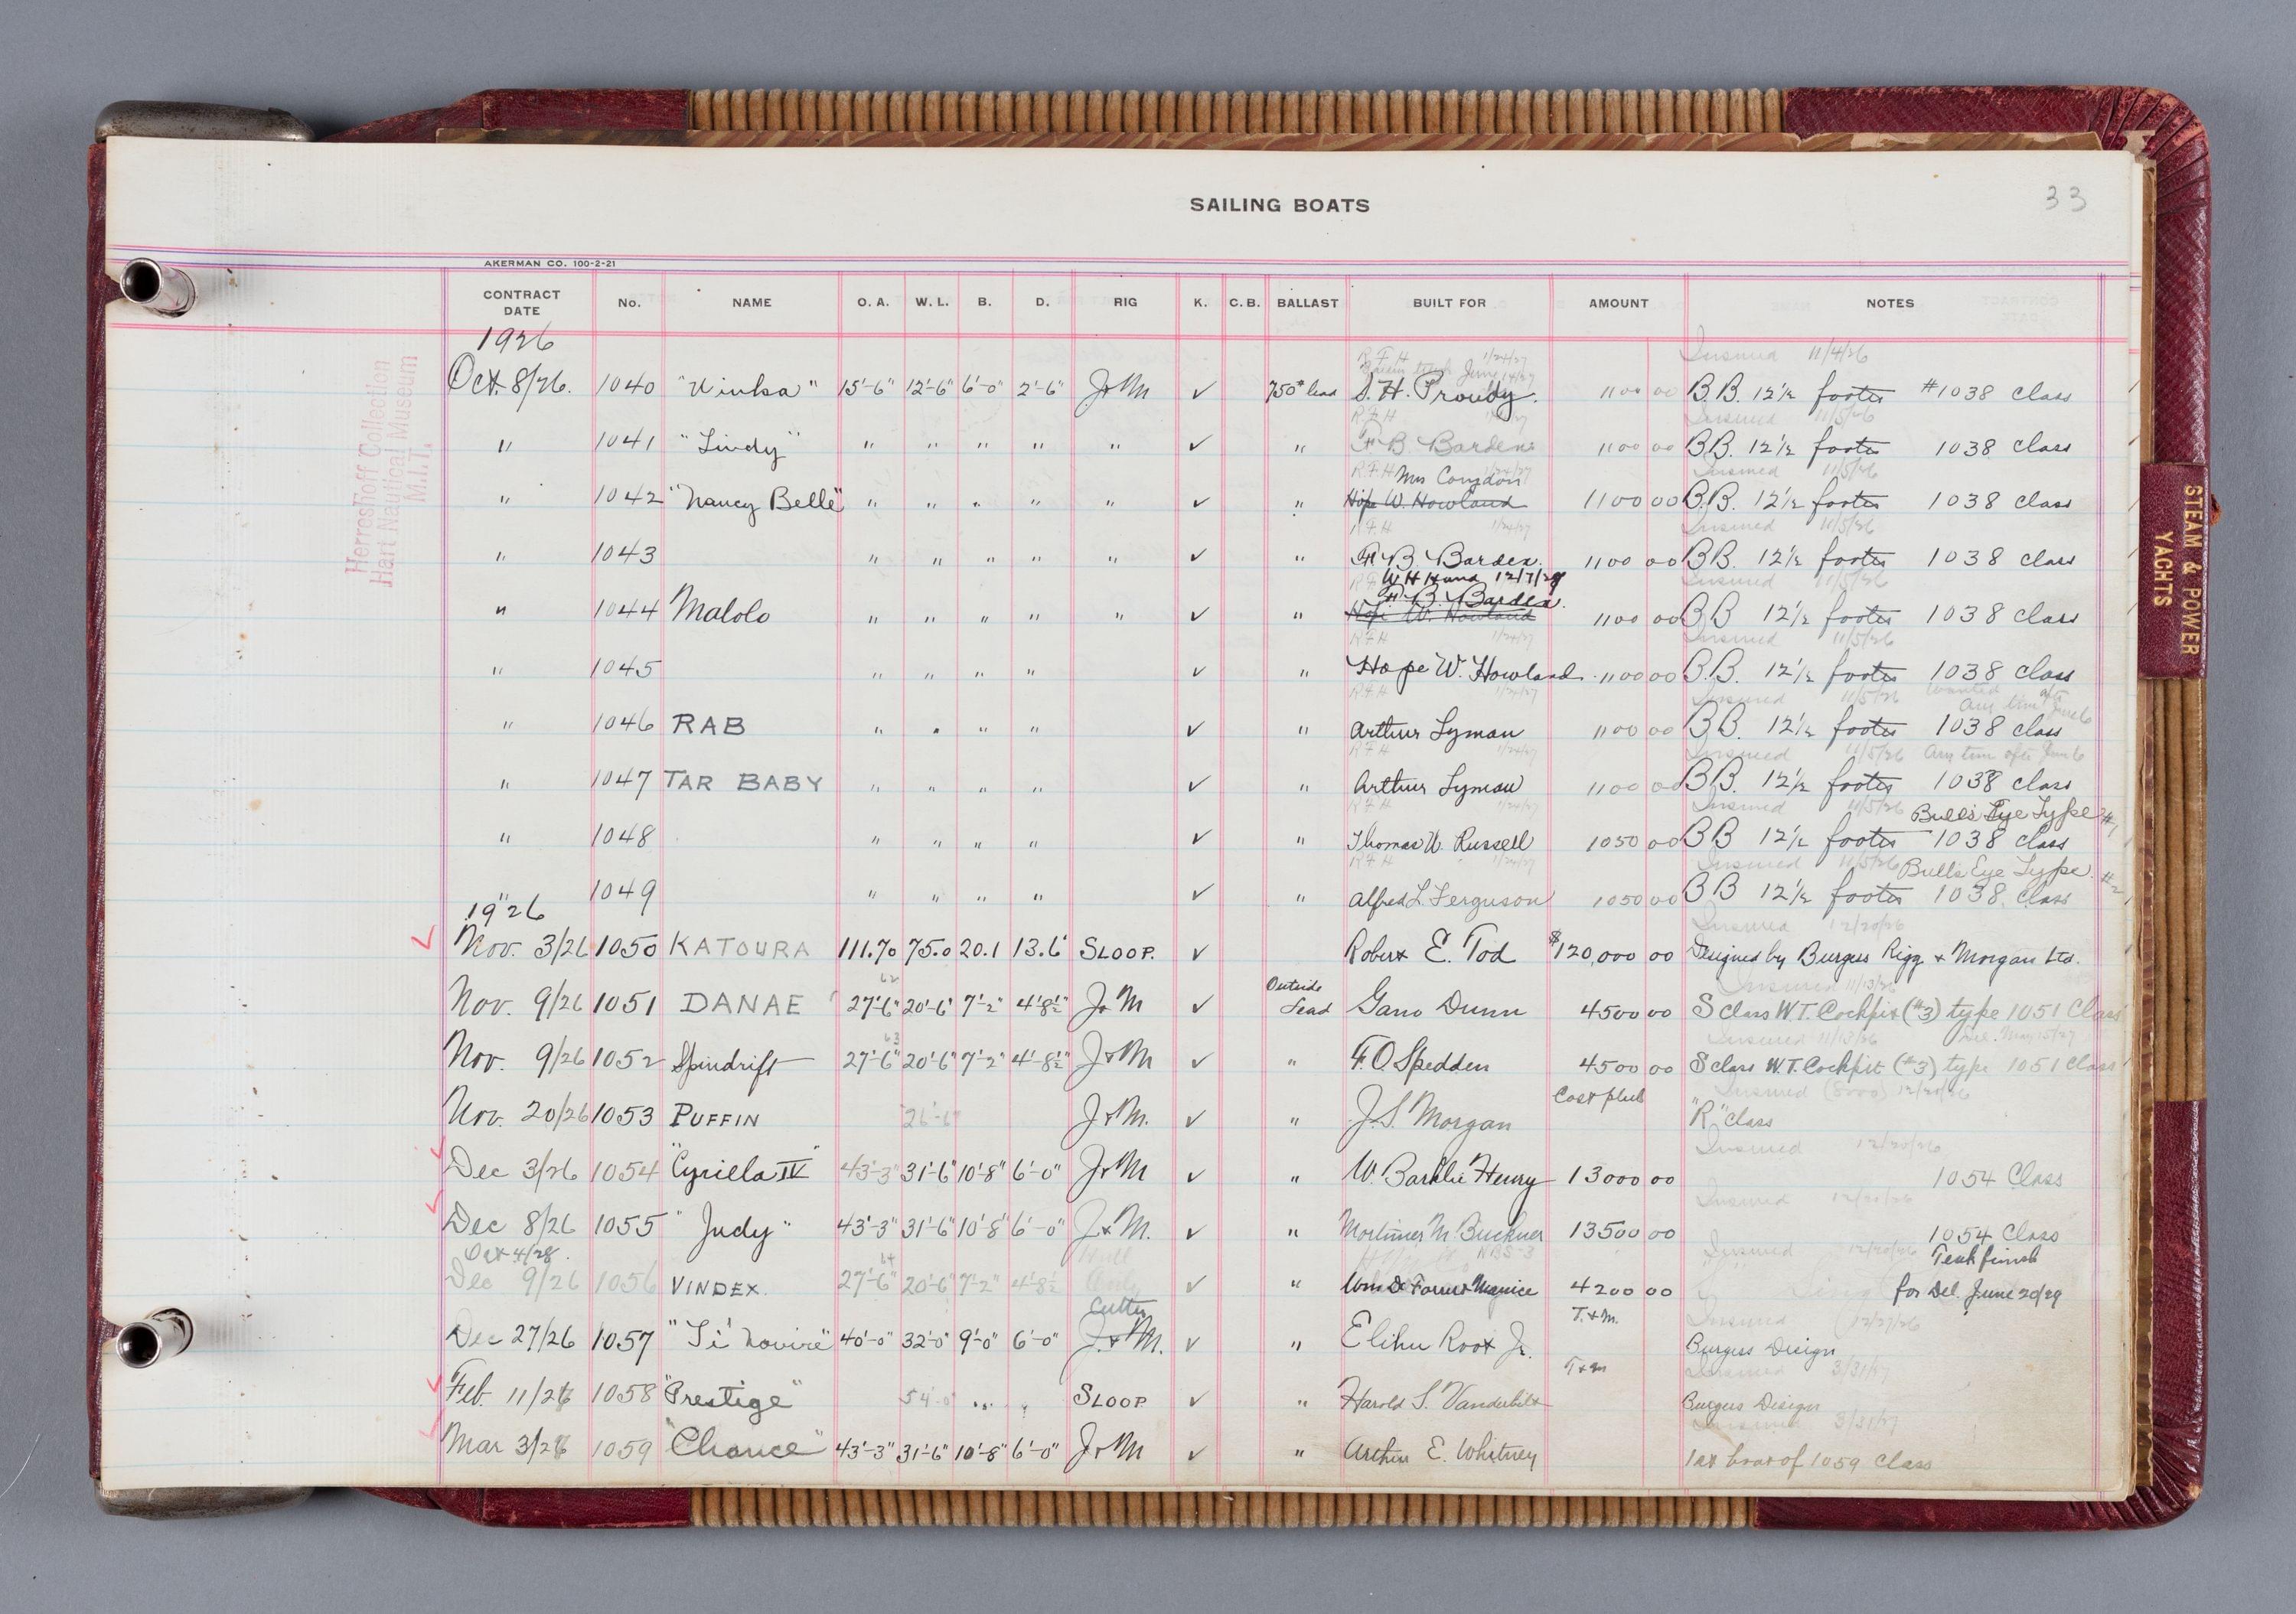 SAILING BOATS
33
AKERMAN CO. 100-2-21
CONTRACT DATE No. NAME O. A. W. L. B. D. RIG K. C. B. BALLAST BUILT FOR AMOUNT NOTES
1926
Insured 11/4/26
R F H 1/24/27
Oct. 8/26. 1040 "Winka" 15'-6" 12'-6" 6'-0" 2'-6" J & M ✓ 750# lead S. H. Proudy. 1100 00 B.B. 12½ footer #1038 class
R F H 1/24/27 Insured 11/5/26
" 1041 "Lindy" " " " " " ✓ " F. B. Barden 1100 00 B.B. 12½ footer 1038 class
R F H Mrs Congdon 1/24/27 Insured 11/5/26
" 1042 "Nancy Belle" " " " " " ✓ " Hope W. Howland 1100 00 B.B. 12½ footer 1038 class
R F H 1/24/27 Insured 11/5/26
" 1043 " " " " " ✓ " F. B. Barden. 1100 00 B.B. 12½ footer 1038 class
W H Hand 12/7/28 Insured 11/5/26
F. B. Barden.
" 1044 Malolo " " " " " ✓ " Hope W. Howland 1100 00 B B 12½ footer 1038 class
R F H 1/24/27 Insured 11/5/26
" 1045 " " " " ✓ " Hope W. Howland 1100 00 B.B. 12½ footer 1038 class
R F H 1/24/27 Insured 11/5/26 Wanted
any time June 6
" 1046 RAB " " " " ✓ " Arthur Lyman 1100 00 B B. 12½ footer 1038 class
R F H 1/24/27 Insured 11/5/26 Any time after June 6
" 1047 TAR BABY " " " " ✓ " Arthur Lyman 1100 00 B B. 12½ footer 1038 class
R F H 1/24/27 Insured 11/5/26 Bull's Eye Type #1
" 1048 " " " " ✓ " Thomas W. Russell 1050 00 B B 12½ footer 1038 class
R F H 1/24/27 Insured 11/5/26 Bull's Eye Type. #2
" 1049 " " " " ✓ " Alfred L. Ferguson 1050 00 B B 12½ footer 1038. class
1926
Insured 12/20/26
Nov. 3/26 1050 KATOURA 111.70 75.0 20.1 13.6 SLOOP. ✓ Robert E. Tod $120,000 00 Designed by Burgess Rigg & Morgan Ltd.
62 Outside Insured 11/13/26
Nov. 9/26 1051 DANAE 27'-6" 20'-6" 7'-2" 4'-8½" J & M ✓ Lead Gano Dunn 4500 00 S class W.T. Cockpit (#3) type 1051 Class
63 Insured 11/13/26 Del. May 15/27
Nov. 9/26 1052 Spindrift 27'-6" 20'-6" 7'-2" 4'-8½" J & M ✓ " F. O. Spedden 4500 00 S class W.T. Cockpit (#3) type 1051 Class
Cost plus Insured (8000) 12/20/26
Nov. 20/26 1053 PUFFIN J & M. ✓ " J. S. Morgan "R" class
Insured 12/20/26
Dec 3/26 1054 "Cyrilla IV" 43'-3" 31'-6" 10'-8" 6'-0" J & M ✓ " W. Barklie Henry 13000 00 1054 Class
Insured 12/20/26
Dec 8/26 1055 "Judy" 43'-3" 31'-6" 10'-8" 6'-0" J & M. ✓ " Mortimer N. Buckner 13500 00 1054 Class
Oct 4/28. 64 Hull NBS-3 Insured 12/20/26 Teak finish
Dec 9/26 1056 VINDEX. 27'-6" 20'-6" 7'-2" 4'-8½ Only ✓ " Wm De Forrest Manice 4200 00 for Del. June 20/29
Cutter T. & M. Insured 12/27/26
Dec 27/26 1057 "Ti' novire" 40'-0" 32'-0" 9'-0" 6'-0" J. & M. ✓ " Elihu Root Jr. Burgess Design
T & M Insured 3/31/27
Feb. 11/26 1058 "Prestige" 54'-0" SLOOP ✓ " Harold S. Vanderbilt Burgess Design
Insured 3/31/27
Mar 3/28 1059 "Chance" 43'-3" 31'-6" 10'-8" 6'-0" J & M ✓ " Arthur E. Whitney 1st boat of 1059 Class
Herreshoff Collection
Hart Nautical Museum
M.I.T.
STEAM & POWER
YACHTS